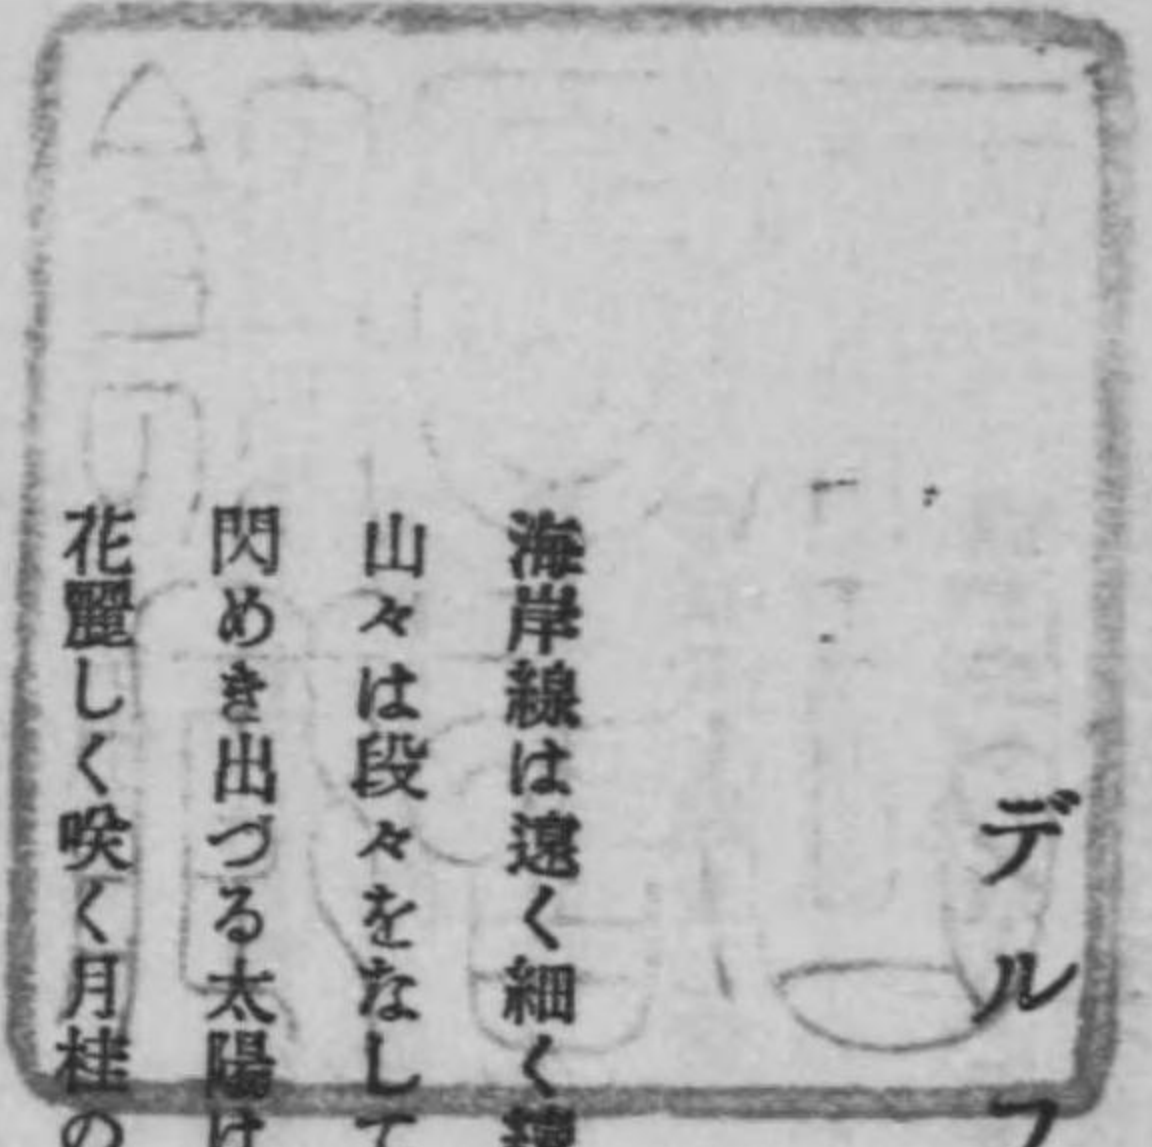 デルフ
海岸線は遠く細く
山々は段々をなして
閃めき出づる太陽は
花麗しく咲く月桂の